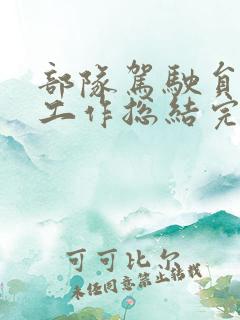 部隊駕駛員
工作总結完
可可比尔
未经同意禁止转载